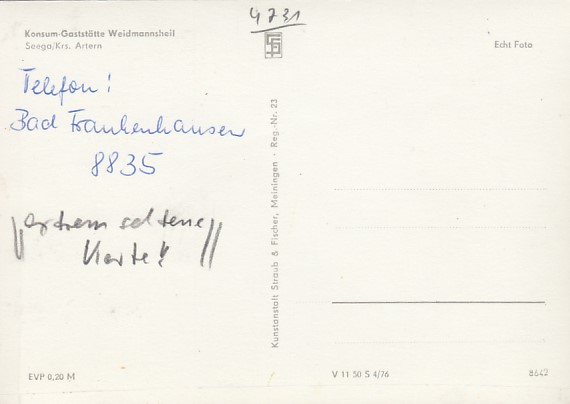 4731
Konsum-Gaststätte Weidmannsheil
Seega/Krs. Artern
Echt Foto
Telefon!
Bad Frankenhausen
8835
"extrem seltene
Karte!"
Kunstanstalt Straub & Fischer, Meiningen · Reg.-Nr. 23
EVP 0,20 M
V 11 50 S 4/76
8642